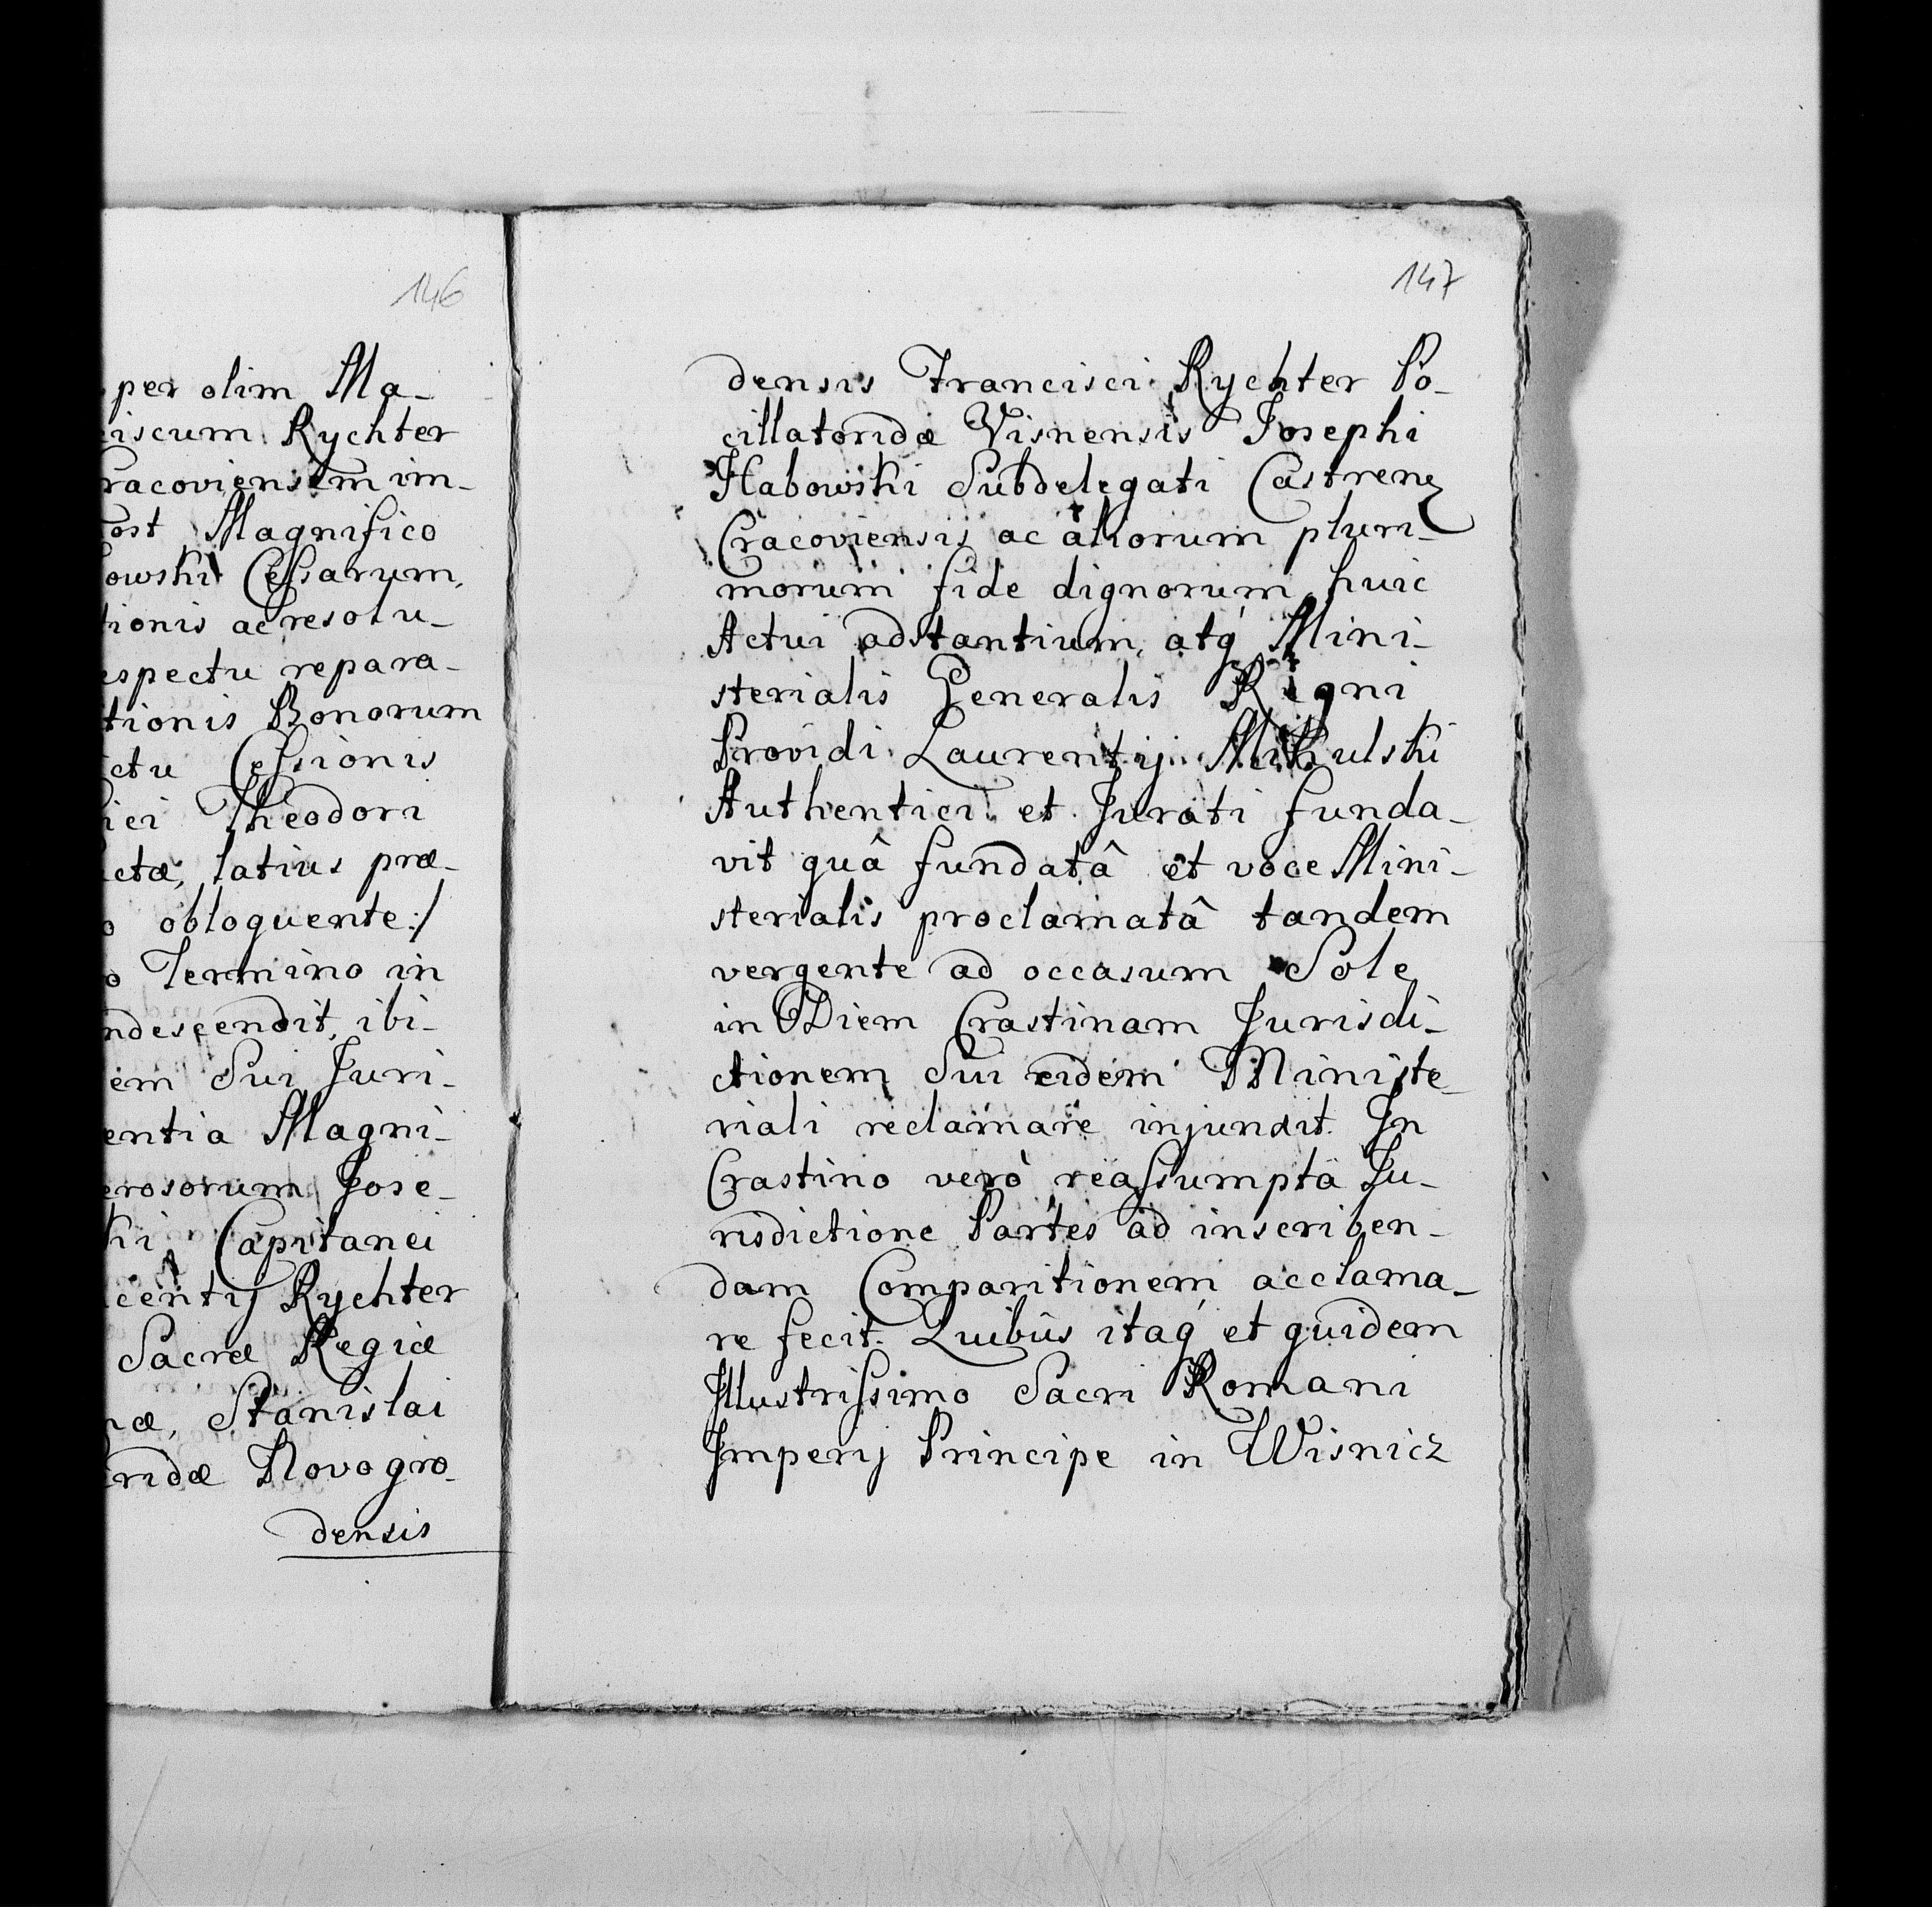 146
per olim Ma-
ciscum Rychter
racoviensem im-
ost Magnifico
owski Cessarum,
tionis ac resolu-
espectu repara-
tionis Bonorum
ctu Cessionis
ici Theodori
ctæ, latius præ-
o obloquente:/
o Termino in
ndescendit, ibi-
em Sui Juri-
entia Magni-
erosorum Jose-
ki Capitanei
centij Rychter
Sacræ Regiæ
næ, Stanislai
ridæ Novogro-
densis
147
densis Francisci Rychter Po-
cillatoridæ Visnensis Josephi
Habowski Subdelegati Castren
Cracoviensis ac aliorum pluri-
morum fide dignorum huic
Actui adstantium, atq Mini-
sterialis Generalis Regni
Providi Laurentij Mikulski
Authentici et Jurati funda-
vit quâ fundatâ et voce Mini-
sterialis proclamatâ tandem
vergente ad occasum Sole
in Diem Crastinam Jurisdi-
ctionem Sui eidem Ministe-
riali reclamare injunxit. In
Crastino verò reassumpta Ju-
risdictione Partes ad inscriben-
dam Comparitionem acclama-
re fecit. Quibus itaq et quidem
Illustrissimo Sacri Romani
Imperij Principe in Wisnicz